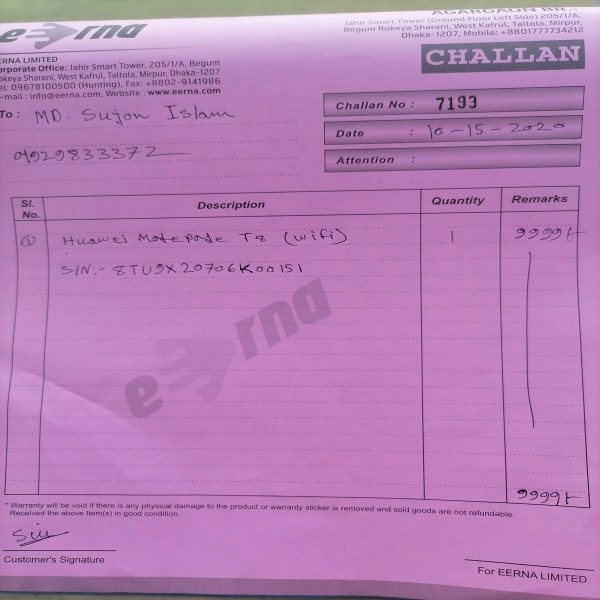 eerna
EERNA LIMITED
orporate Office: Jahir Smart Tower, 205/1/A, Begum
okeya Sharani, West Kafrul, Taltola, Mirpur, Dhaka-1207
el: 09678100500 (Hunting), Fax: +8802-9141986
-mail : info@eerna.com, Website : www.eerna.com
AGARGAON BR
Jahir Smart Tower (Ground Floor Left Side) 205/1/A,
Begum Rokeya Sharani, West Kafrul, Taltola, Mirpur,
Dhaka-1207, Mobile: +8801777734212
CHALLAN
To : MD. Sujon Islam
01929833372
Challan No : 7193
Date : 10-15-2020
Attention :
Sl. No. Description Quantity Remarks
① Huawei Matepade T8 (wifi) 1 9999৳
S/N:- 8TU9X20706K00151
eerna
9999৳
* Warranty will be void if there is any physical damage to the product or warranty sticker is removed and sold goods are not refundable.
Received the above item(s) in good condition.
Customer's Signature
For EERNA LIMITED